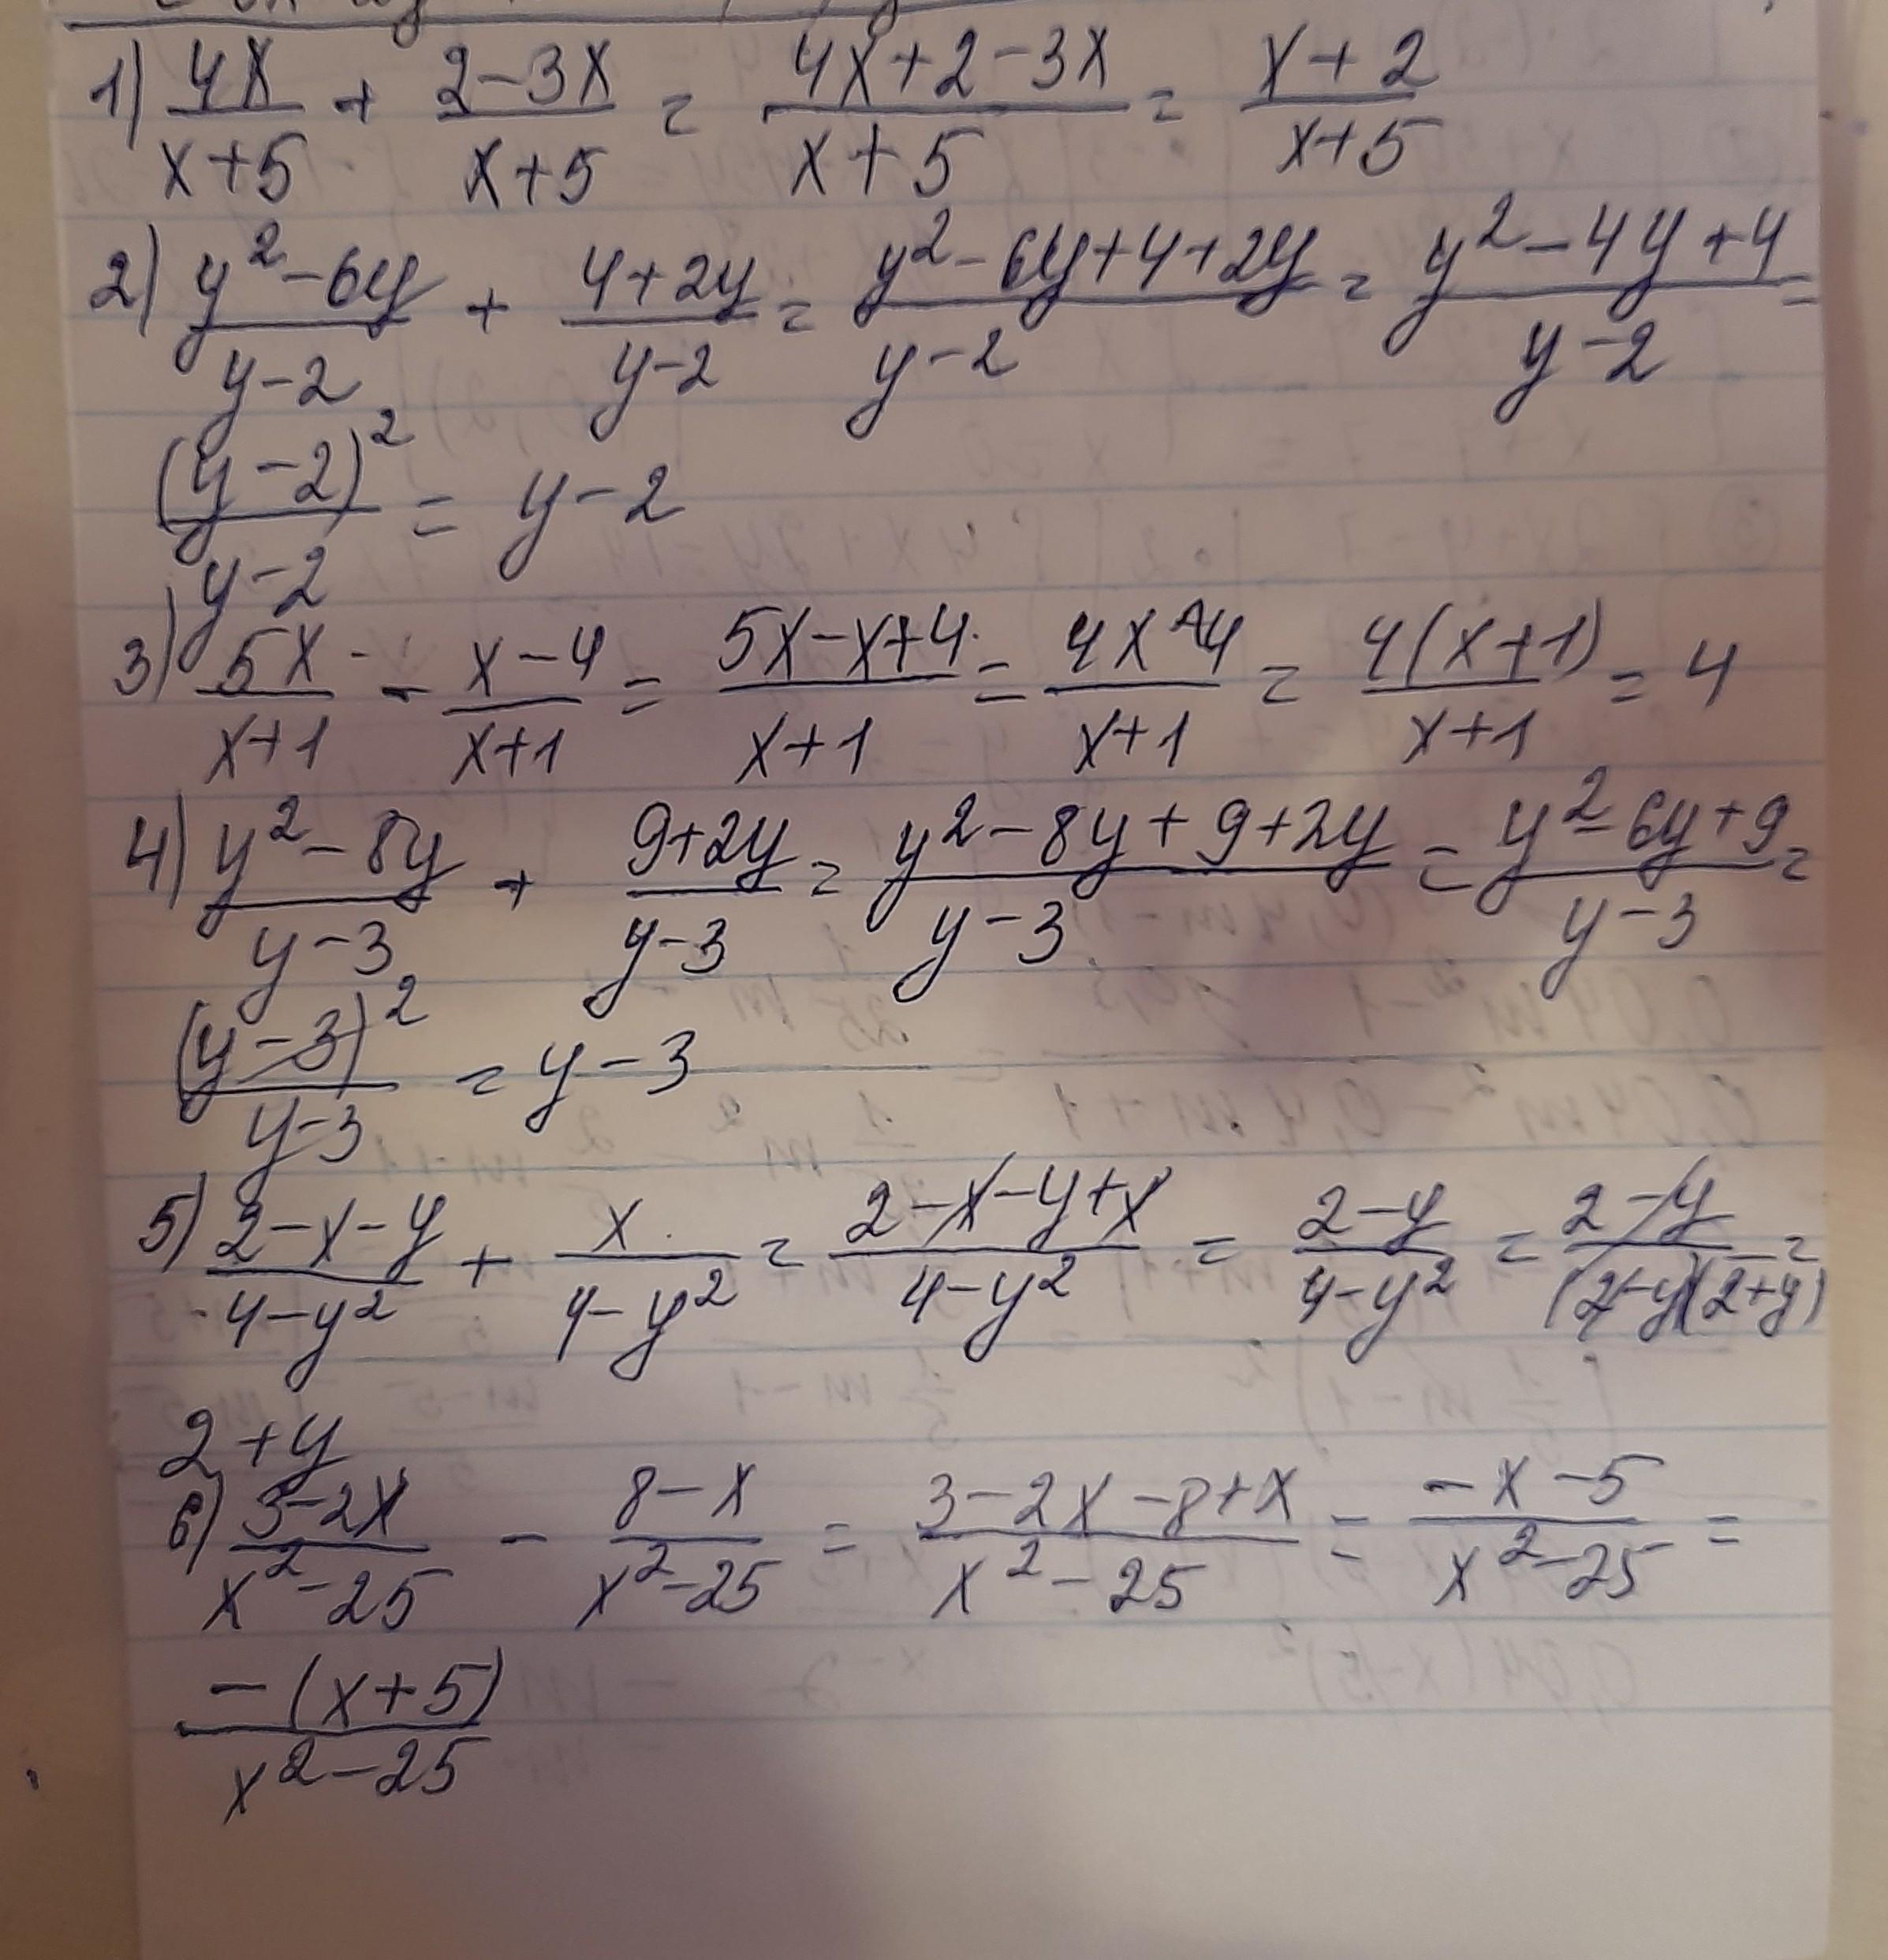 1) 4x/(x+5) + (2-3x)/(x+5) = (4x+2-3x)/(x+5) = (x+2)/(x+5)
2) (y²-6y)/(y-2) + (4+2y)/(y-2) = (y²-6y+4+2y)/(y-2) = (y²-4y+4)/(y-2) =
(y-2)²/(y-2) = y-2
3) 5x/(x+1) - (x-4)/(x+1) = (5x-x+4)/(x+1) = (4x+4)/(x+1) = 4(x+1)/(x+1) = 4
4) (y²-8y)/(y-3) + (9+2y)/(y-3) = (y²-8y+9+2y)/(y-3) = (y²-6y+9)/(y-3) =
(y-3)²/(y-3) = y-3
5) (2-x-y)/(4-y²) + x/(4-y²) = (2-x-y+x)/(4-y²) = (2-y)/(4-y²) = (2-y)/((2-y)(2+y)) =
2+y
6) (3-2x)/(x²-25) - (8-x)/(x²-25) = (3-2x-8+x)/(x²-25) = (-x-5)/(x²-25) =
-(x+5)/(x²-25)